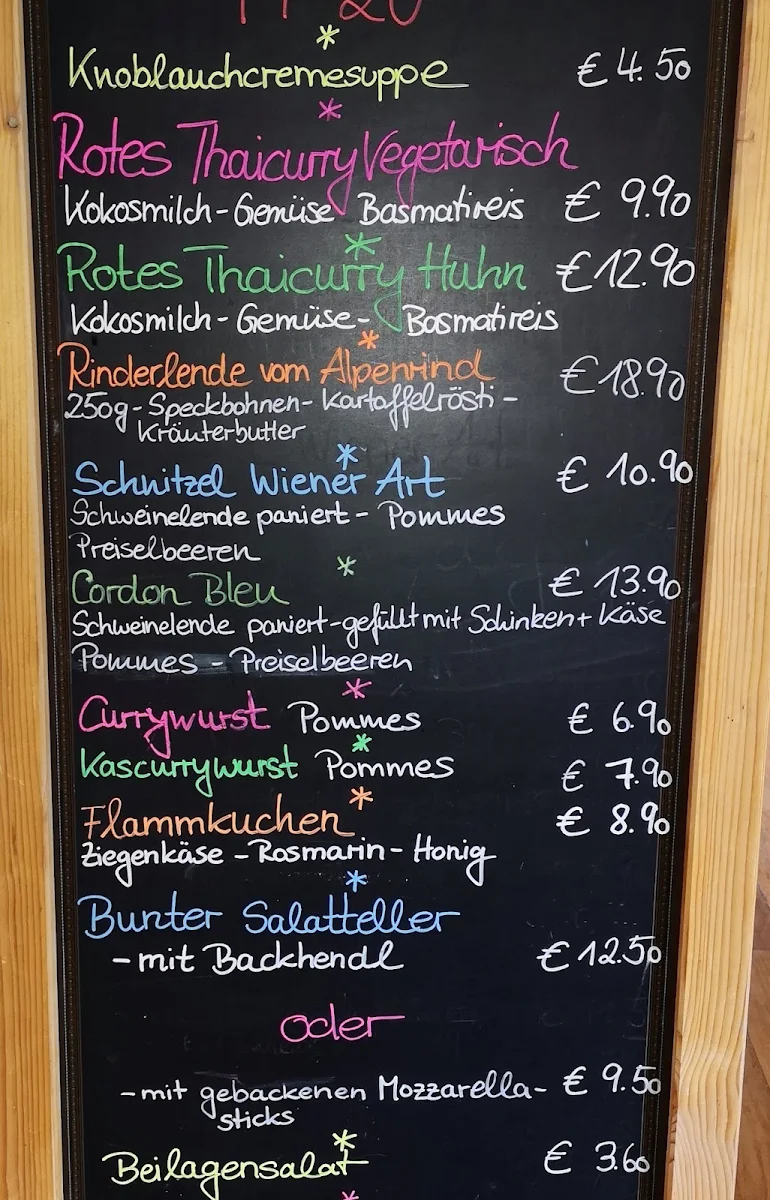 Knoblauchcremesuppe € 4.50
Rotes Thaicurry Vegetarisch
Kokosmilch - Gemüse Basmatireis € 9.90
Rotes Thaicurry Huhn € 12.90
Kokosmilch - Gemüse - Basmatireis
Rinderlende vom Alpenrind € 18.90
250g - Speckbohnen - Kartoffelrösti -
Kräuterbutter
Schnitzel Wiener Art € 10.90
Schweinelende paniert - Pommes
Preiselbeeren
Cordon Bleu € 13.90
Schweinelende paniert - gefüllt mit Schinken + Käse
Pommes - Preiselbeeren
Currywurst Pommes € 6.90
Kascurrywurst Pommes € 7.90
Flammkuchen € 8.90
Ziegenkäse - Rosmarin - Honig
Bunter Salatteller
- mit Backhendl € 12.50
oder
- mit gebackenen Mozzarella- € 9.50
sticks
Beilagensalat € 3.60